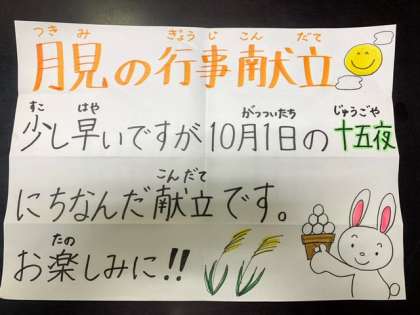 つきみ ぎょうじ こんだて
月見の行事献立
すこ はや がつついたち じゅうごや
少し早いですが10月1日の十五夜
こんだて
にちなんだ献立です。
たの
お楽しみに!!